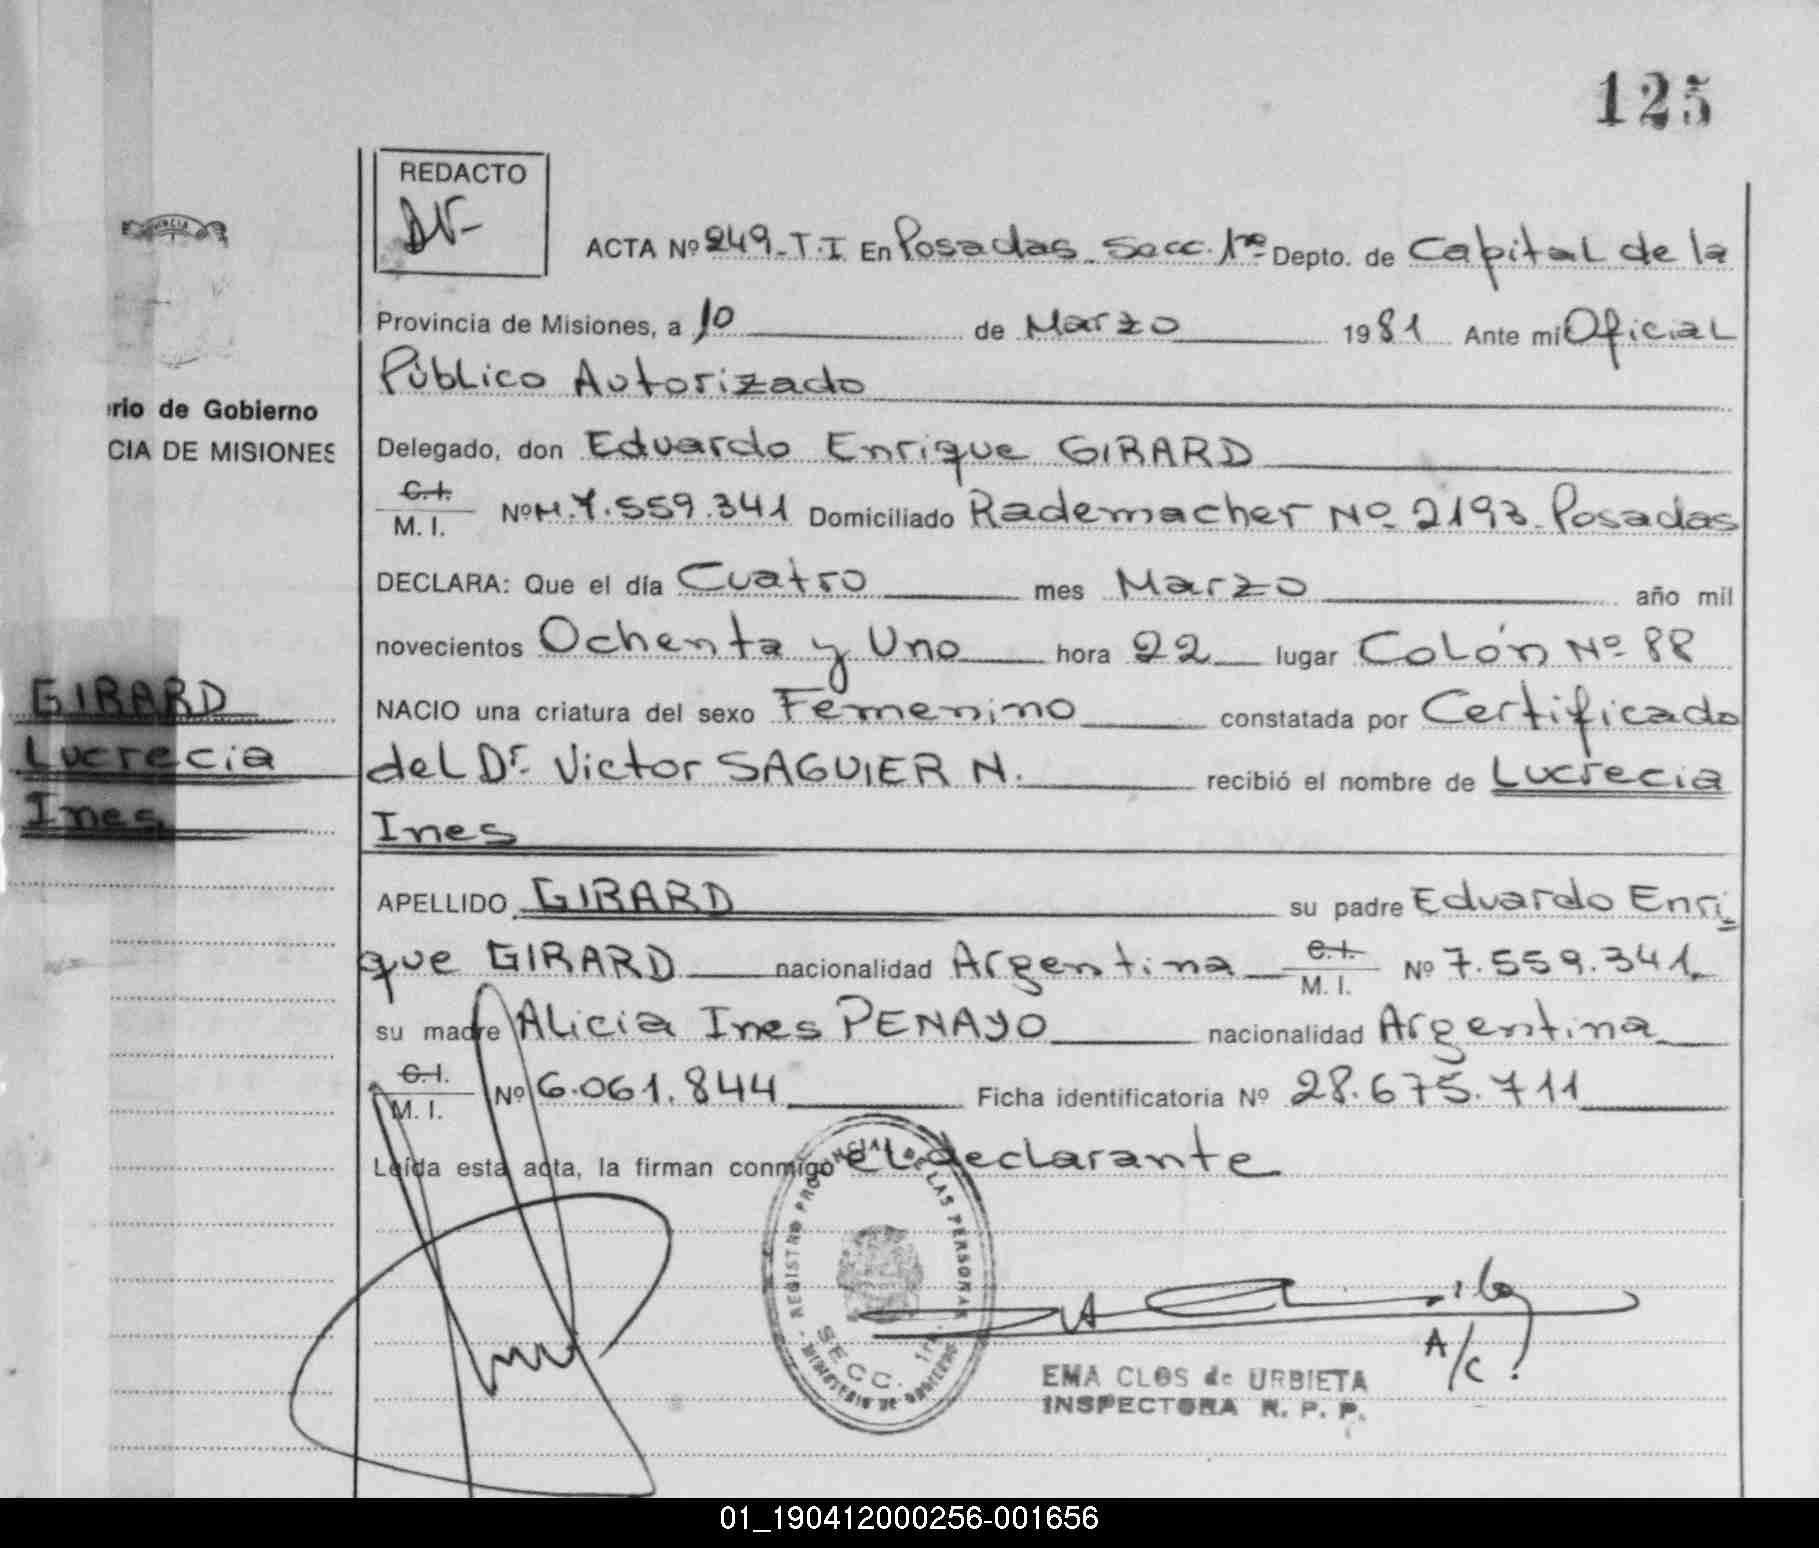 125
REDACTO
ACTA Nº 249-T.I En Posadas Secc. 1ra Depto. de Capital de la
Provincia de Misiones, a 10 de Marzo 1981 Ante mi Oficial
Público Autorizado
rio de Gobierno
CIA DE MISIONES
Delegado, don Eduardo Enrique GIRARD
C.I. M. I. Nº M.7.559.341 Domiciliado Rademacher Nº 2193 Posadas
DECLARA: Que el día Cuatro mes Marzo año mil
novecientos Ochenta y Uno hora 22 lugar Colón Nº 88
GIRARD
Lucrecia
Ines
NACIO una criatura del sexo Femenino constatada por Certificado
del Dr. Victor SAGUIER N. recibió el nombre de Lucrecia
Ines
APELLIDO GIRARD su padre Eduardo Enri
que GIRARD nacionalidad Argentina C.I. M. I. Nº 7.559.341
su madre Alicia Ines PENAYO nacionalidad Argentina
C.I. M. I. Nº 6.061.844 Ficha identificatoria Nº 28.675.711
Leída esta acta, la firman conmigo el declarante
REGISTRO PROVINCIAL DE LAS PERSONAS
SECC. 1ra.
MINISTERIO DE GOBIERNO
A/C
EMA CLOS de URBIETA
INSPECTORA R. P. P.
01_190412000256-001656